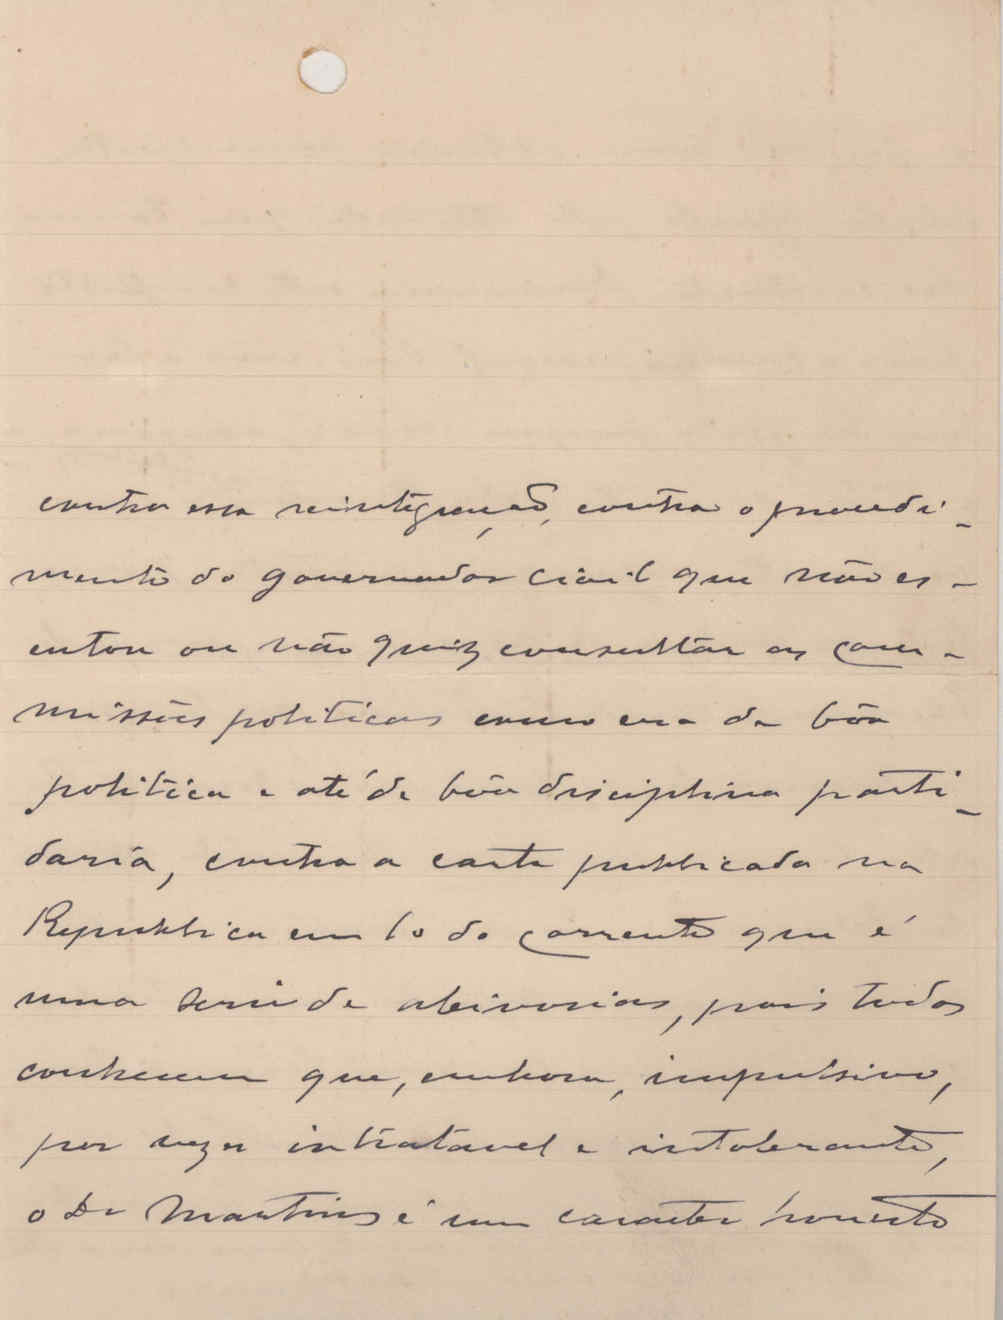 contra essa reintegração, contra o procedi-
mento do governador civil que não es-
cutou ou não quiz consultar as com-
missões politicas como era da bôa
politica e até de bôa disciplina parti-
daria, contra a carta publicada na
Republica em 10 do corrente que é
uma serie de aleivosias, pois todos
conhecem que, embora, impulsivo,
por vezes intratavel e intolerante,
o Dr Martins é um caracter honesto